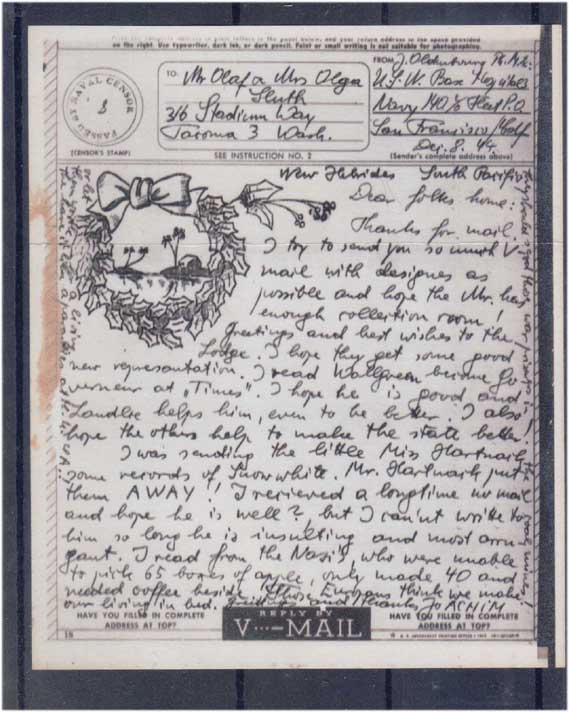 Print the complete address in plain letters in the panel below, and your return address in the space provided
on the right. Use typewriter, dark ink, or dark pencil. Faint or small writing is not suitable for photographing.
PASSED BY NAVAL CENSOR
(CENSOR'S STAMP)
TO:
Mr Olaf a Mrs Olga
Sluth
316 Stadium Way
Tacoma 3 Wash.
SEE INSTRUCTION NO. 2
FROM
J. Oldenbourg
U.S.N. Base Hospital
Navy 140 % Fleet P.O.
San Francisco / Calf
Dec. 8. 44
(Sender's complete address above)
New Hebrides South Pacific
Dear folks home:
Thanks for mail.
I try to send you so much V-
mail with designes as
possible and hope the Mr. has
enough collection room!
Greetings and best wishes to the
Lodge. I hope they get some good
new representation. I read Wallgreen become Go
verneur at "Times". I hope he is good and
Landlie helps him, even to be better. I also
hope the others help to make the state better.
I was sending the little Miss Hartnach
some records of Snowwhite. Mr. Hartnach put
them AWAY!! I recieved a longtime no mail
and hope he is well?, but I can'nt write to
him so long he is insulting and most arro
gant. I read from the Nasi's, who were unable
to pick 65 boxes of apple, only made 40 and
needed coffee beside. Those Europans think we make
our living in bed. Greetings and thanks JOACHIM
HAVE YOU FILLED IN COMPLETE
ADDRESS AT TOP?
REPLY BY
V···—MAIL
HAVE YOU FILLED IN COMPLETE
ADDRESS AT TOP?